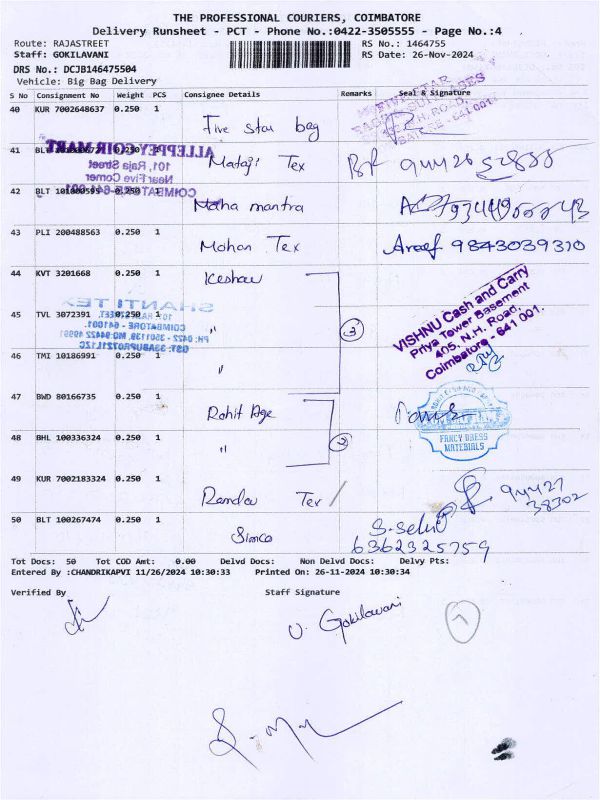 THE PROFESSIONAL COURIERS, COIMBATORE
Delivery Runsheet - PCT - Phone No.:0422-3505555 - Page No.:4
Route: RAJASTREET RS No.: 1464755
Staff: GOKILAVANI RS Date: 26-Nov-2024
DRS No.: DCJB146475504
Vehicle: Big Bag Delivery
S No Consignment No Weight PCS Consignee Details Remarks Seal & Signature
40 KUR 7002648637 0.250 1 Five star bag
41 BLT 0.250 1 Mataji Tex
ALLEPPEY COIR MART
101, Raja Street
Near Five Corner
COIMBATORE-641 001
42 BLT 0.250 1 Maha mantra
43 PLI 200488563 0.250 1 Mohan Tex Araef 9843039310
44 KVT 3201668 0.250 1 Keshav
SHANTI TEX
COIMBATORE - 641001.
45 TVL 3072391 0.250 1 "
3
VISHNU Cash and Carry
Priya Tower Basement
405, N.H. Road,
Coimbatore - 641 001.
46 TMI 10186991 0.250 1 "
47 BWD 80166735 0.250 1 Rohit Age
2
FANCY DRESS
MATERIALS
48 BHL 100336324 0.250 1 "
49 KUR 7002183324 0.250 1 Tex 94427
38302
50 BLT 100267474 0.250 1 Simco
6362325759
Tot Docs: 50 Tot COD Amt: 0.00 Delvd Docs: Non Delvd Docs: Delvy Pts:
Entered By :CHANDRIKAPVI 11/26/2024 10:30:33 Printed On: 26-11-2024 10:30:34
Verified By Staff Signature
U. Gokilavani